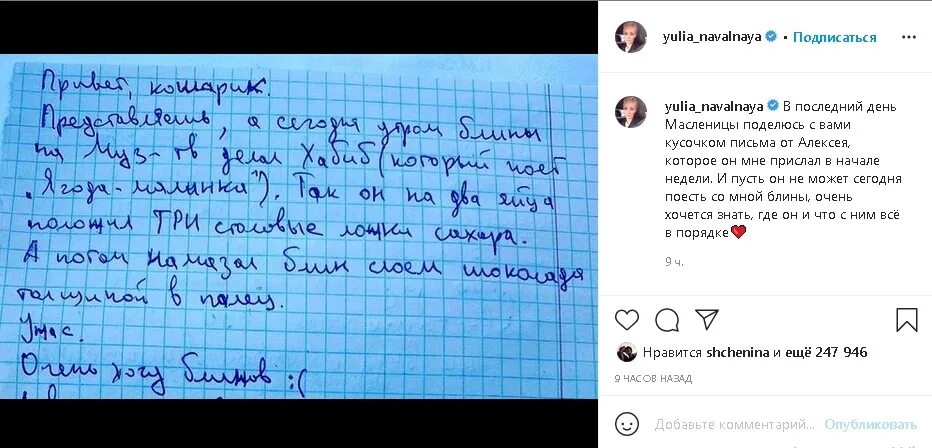 Привет, кошарик.
Представляешь, а сегодня утром блины
на Муз-тв делал Хабиб (который поёт
"Ягода-малинка"). Так он на два яйца
положил ТРИ столовые ложки сахара.
А потом намазал блин слоем шоколада
толщиной в палец.
Ужас.
Очень хочу блинов :(
yulia_navalnaya • Подписаться
yulia_navalnaya В последний день
Масленицы поделюсь с вами
кусочком письма от Алексея,
которое он мне прислал в начале
недели. И пусть он не может сегодня
поесть со мной блины, очень
хочется знать, где он и что с ним всё
в порядке❤
9 ч.
Нравится shchenina и ещё 247 946
9 ЧАСОВ НАЗАД
Добавьте комментарий... Опубликовать